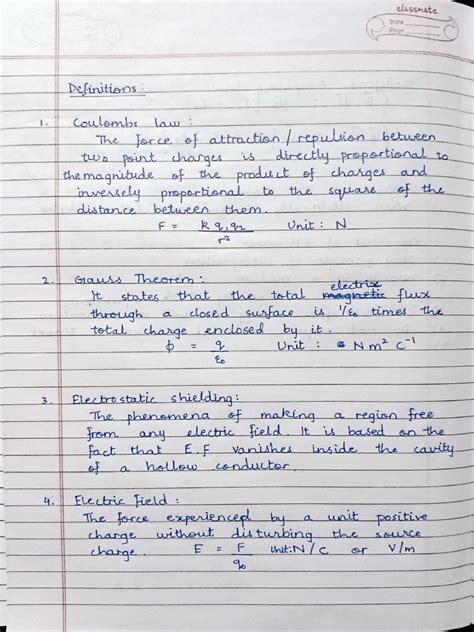 classmate
Date
Page
Definitions :
1. Coulombs law :
The force of attraction / repulsion between
two point charges is directly proportional to
the magnitude of the product of charges and
inversely proportional to the square of the
distance between them.
F = k q₁q₂ / r² Unit : N
2. Gauss Theorem :
electric
It states that the total magnetic flux
through a closed surface is 1/ε₀ times the
total charge enclosed by it.
ϕ = q / ε₀ Unit : N m² C⁻¹
3. Electrostatic shielding :
The phenomena of making a region free
from any electric field. It is based on the
fact that E.F vanishes inside the cavity
of a hollow conductor.
4. Electric Field :
The force experienced by a unit positive
charge without disturbing the source
charge. E = F / q₀ Unit: N/C or V/m